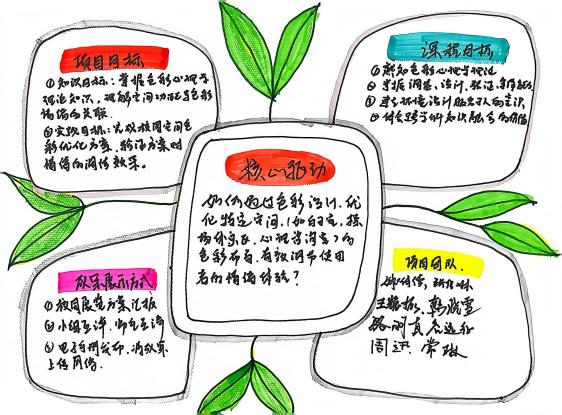 项目目标
①知识目标：掌握色彩心理学
理论知识，理解空间功能与色彩
情绪的关联.
②实践目标：完成校园空间色
彩优化方案，验证方案对
情绪的调节效果。
课程目标
①熟知色彩心理学理论
②掌握调查、设计、验证、
③建立环境设计服务于人的意识
④体会跨学科知识融合的价值
核心驱动
如何通过色彩设计，优
化特定空间，（如自宅、操
场休息区、心理咨询室）的
色彩布局，有效调节使用
者的情绪体验？
成果展示方式
①校园展览方案汇报
②小组互评，师生互评
③电子相册发布，
上传网络.
项目团队.
周迅 常